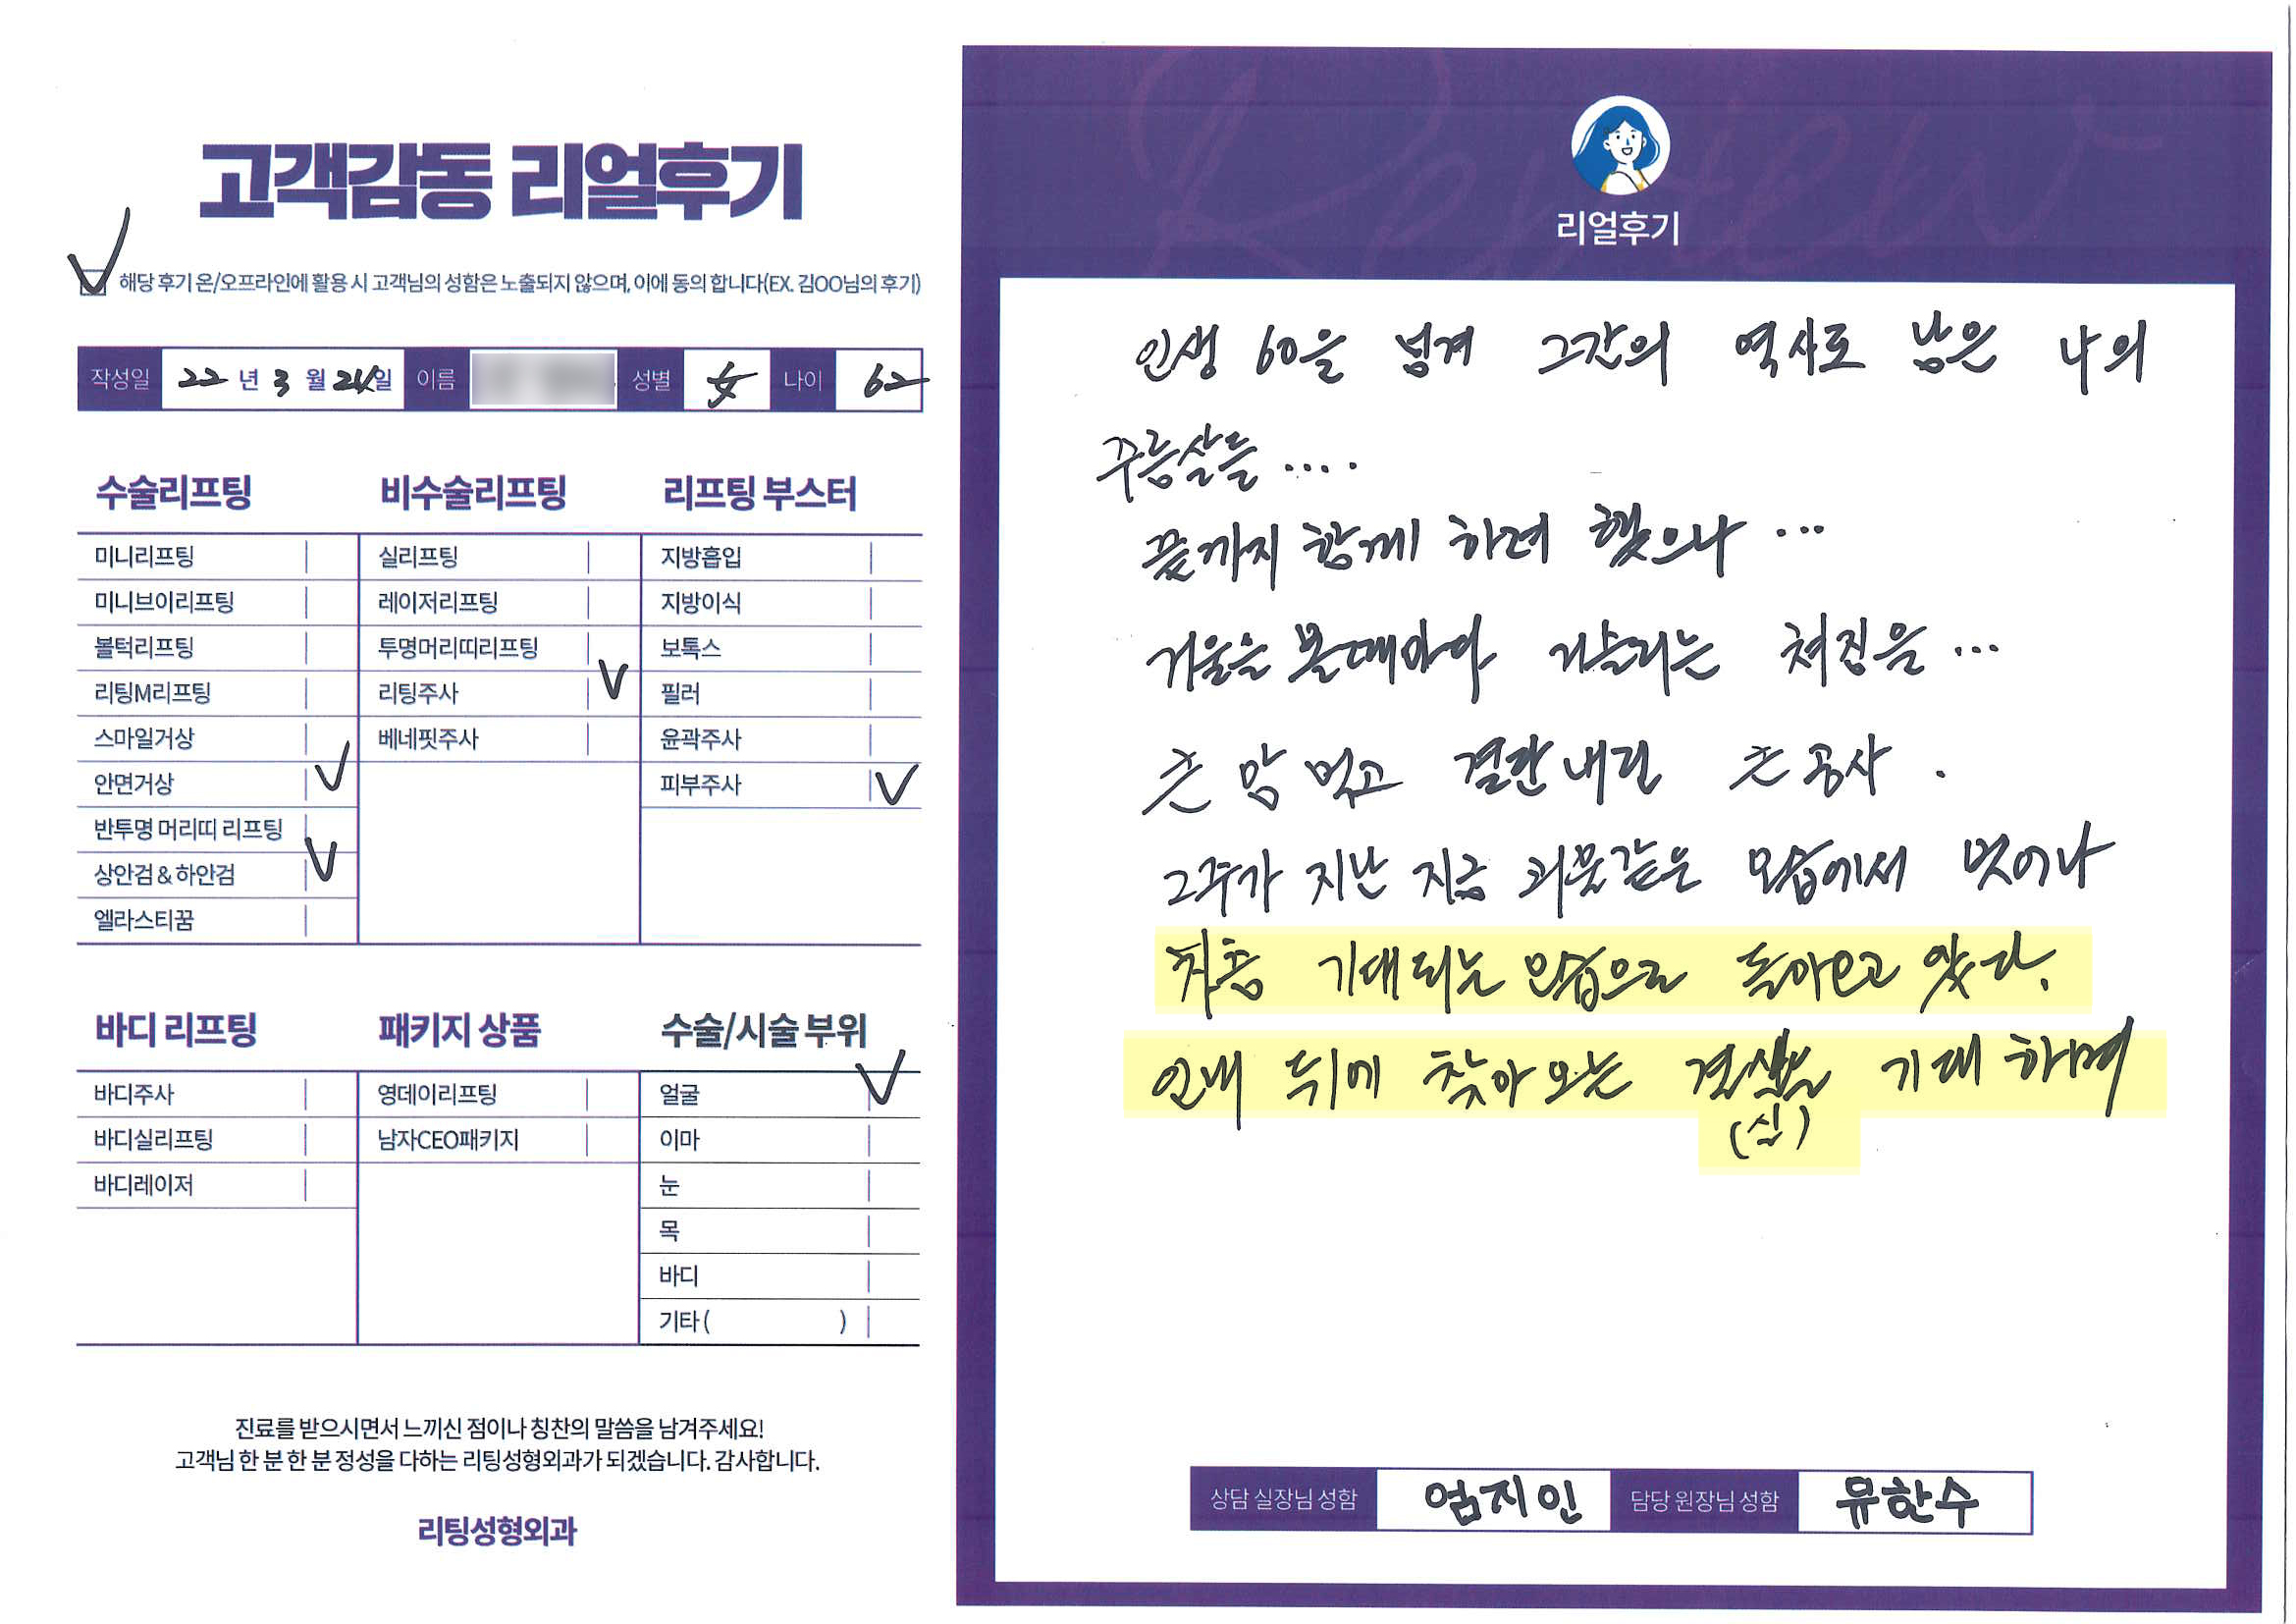 고객감동 리얼후기
해당 후기 온/오프라인에 활용 시 고객님의 성함은 노출되지 않으며, 이에 동의 합니다(EX. 김OO님의 후기)
작성일 22년 3월 24일 이름 성별 女 나이 62
수술리프팅
미니리프팅
미니브이리프팅
볼턱리프팅
리팅M리프팅
스마일거상
안면거상
반투명 머리띠 리프팅
상안검 & 하안검
엘라스티꿈
비수술리프팅
실리프팅
레이저리프팅
투명머리띠리프팅
리팅주사
베네핏주사
리프팅 부스터
지방흡입
지방이식
보톡스
필러
윤곽주사
피부주사
바디 리프팅
바디주사
바디실리프팅
바디레이저
패키지 상품
영데이리프팅
남자CEO패키지
수술/시술 부위
얼굴
이마
눈
목
바디
기타 ( )
진료를 받으시면서 느끼신 점이나 칭찬의 말씀을 남겨주세요!
고객님 한 분 한 분 정성을 다하는 리팅성형외과가 되겠습니다. 감사합니다.
리팅성형외과
Review
리얼후기
인생 60을 넘겨 그간의 역사로 남은 나의
주름살들 ....
끝까지 함께 하려 했으나 ...
거울을 볼때마다 거슬리는 쳐짐을 ...
큰 맘 먹고 결단내린 큰 공사 .
2주가 지난 지금 괴물같은 모습에서 벗어나
차츰 기대되는 모습으로 돌아오고 있다.
인내 뒤에 찾아 오는 결실을 기대 하며
(실)
상담 실장님 성함 엄지인 담당 원장님 성함 뮤한수